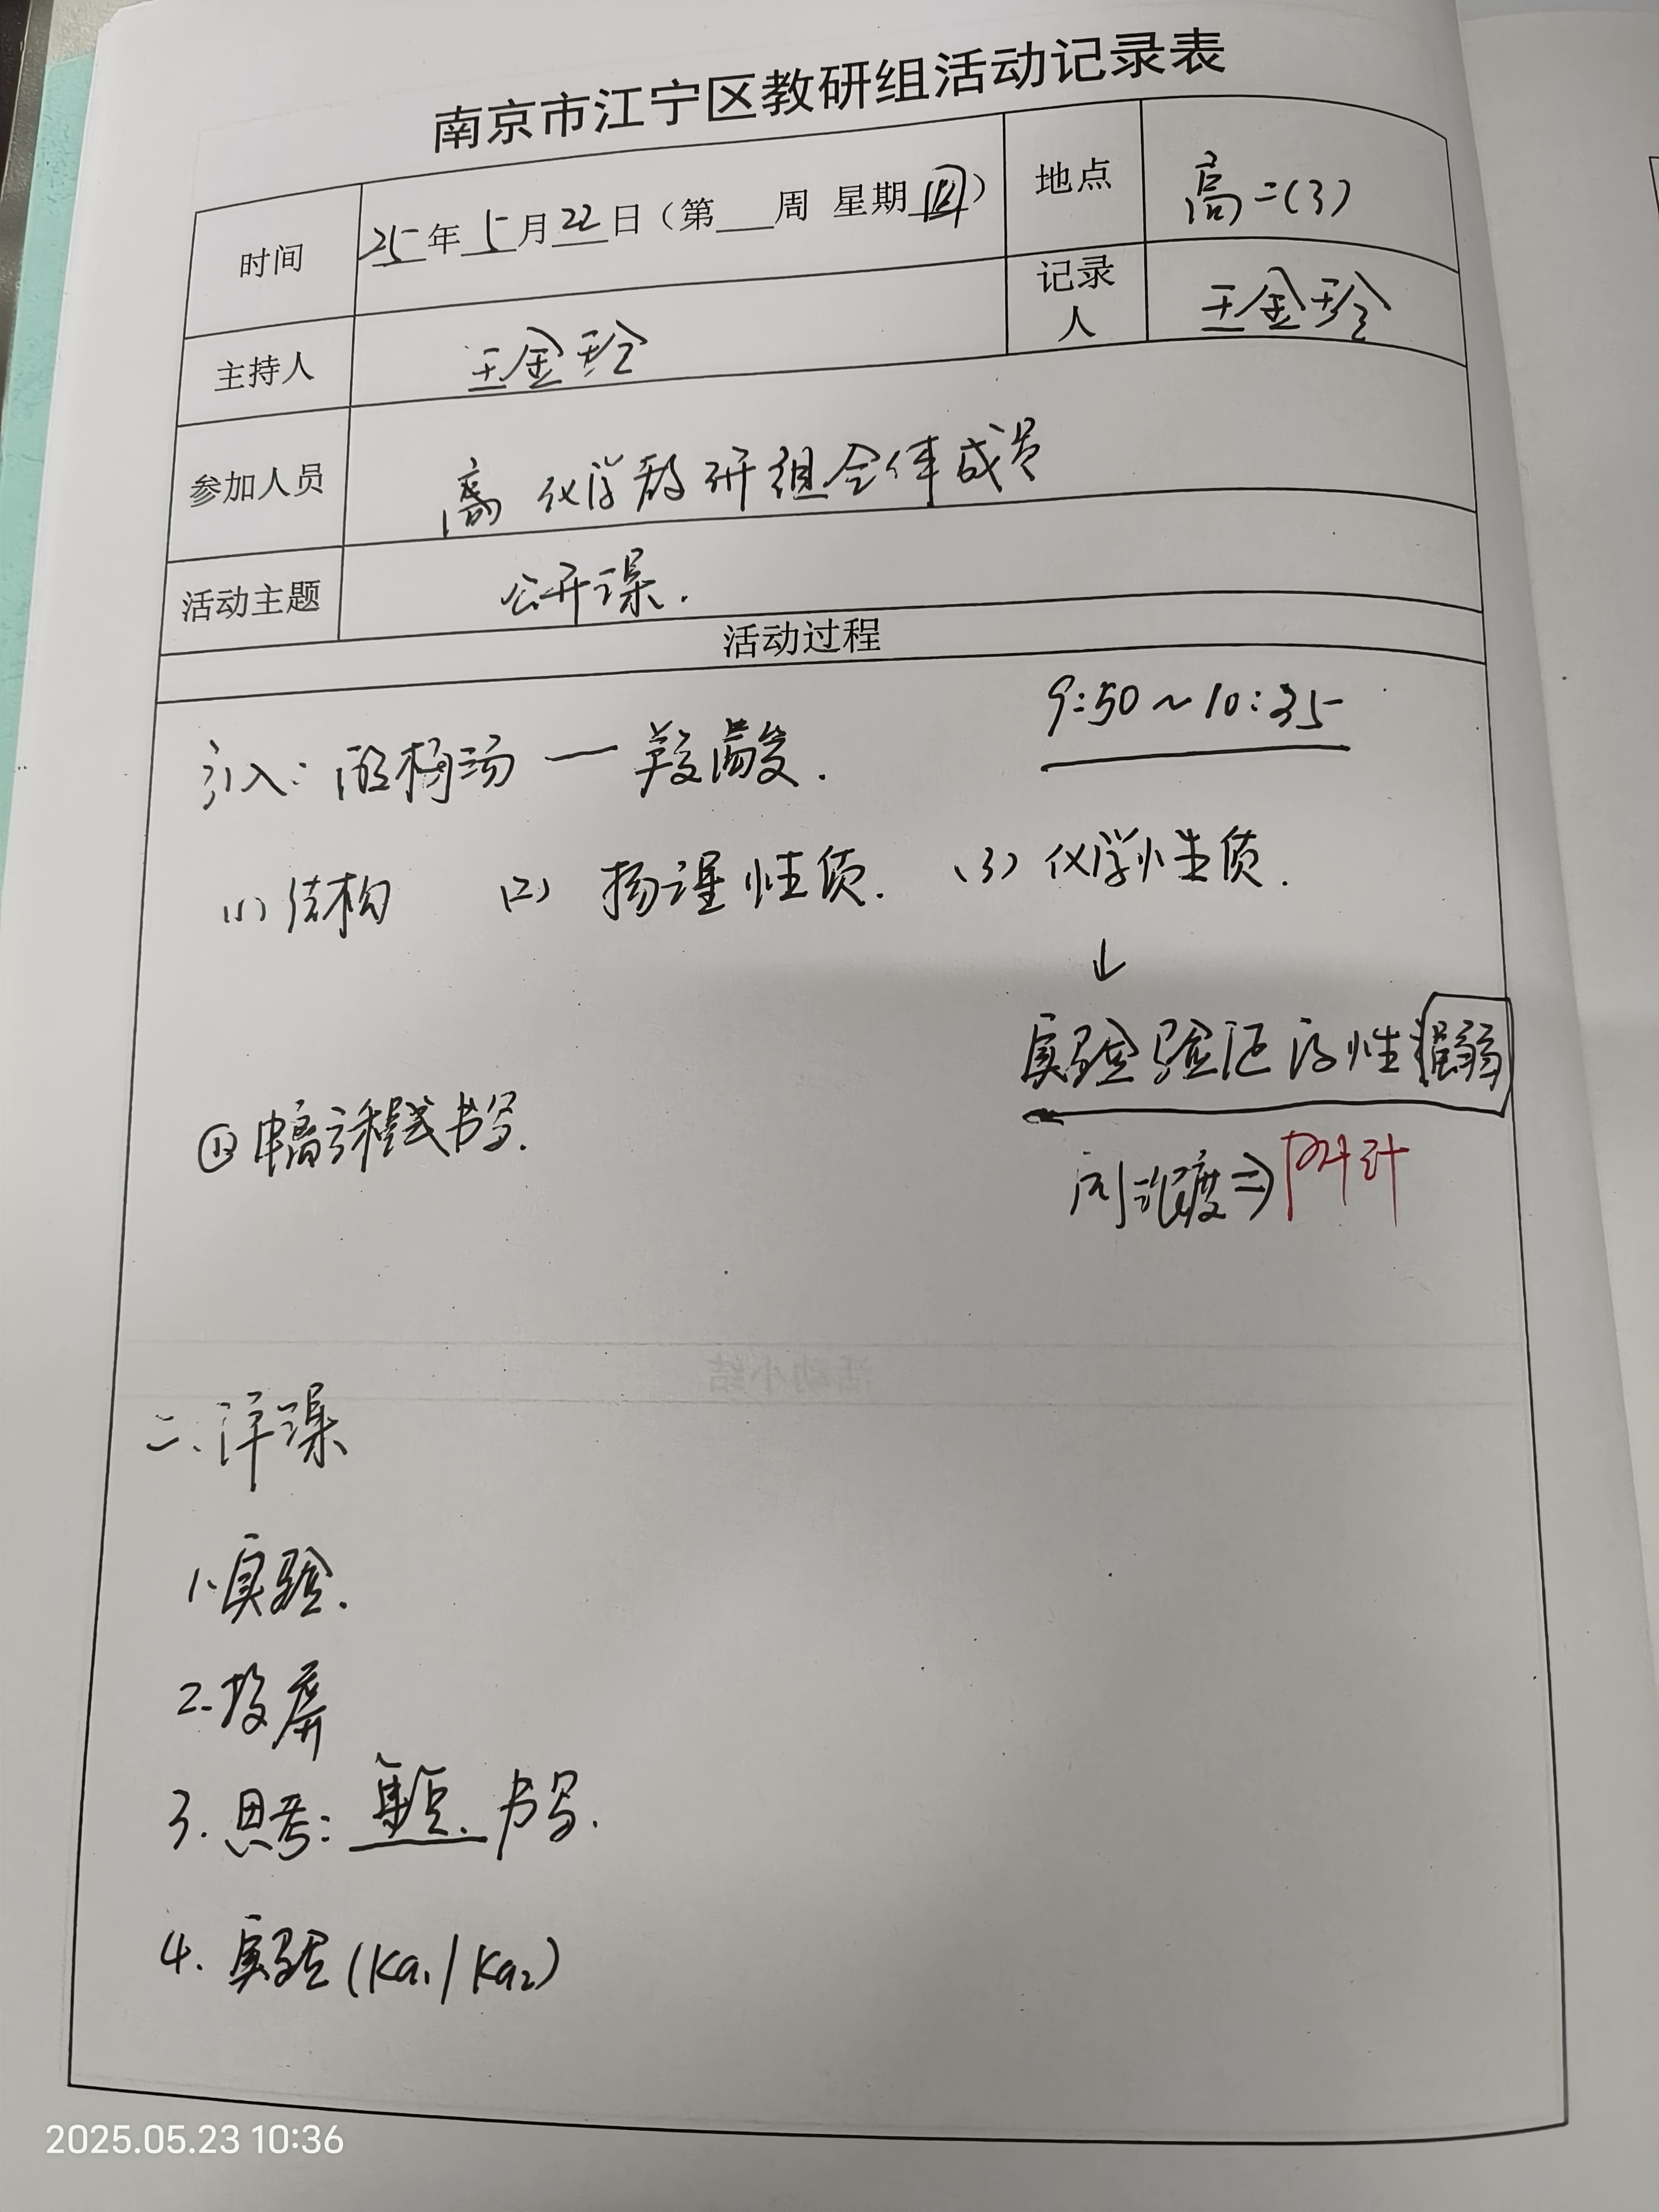 南京市江宁区教研组活动记录表
时间 25年5月22日（第 周 星期四） 地点 高二(3)
主持人 王金玲 记录人 王金玲
参加人员 高 化学教研组全体成员
活动主题 公开课.
活动过程
9:50～10:35
引入: 酸梅汤 — 羧酸.
(1) 结构 (2) 物理性质. (3) 化学性质.
↓
实验验证酸性强弱
① 电离方程式书写.
同浓度⇒PH计
活动小结
二、评课
1、实验.
2. 投屏
3. 思考: 书写.
4. 实验(Ka₁/Ka₂)
2025.05.23 10:36